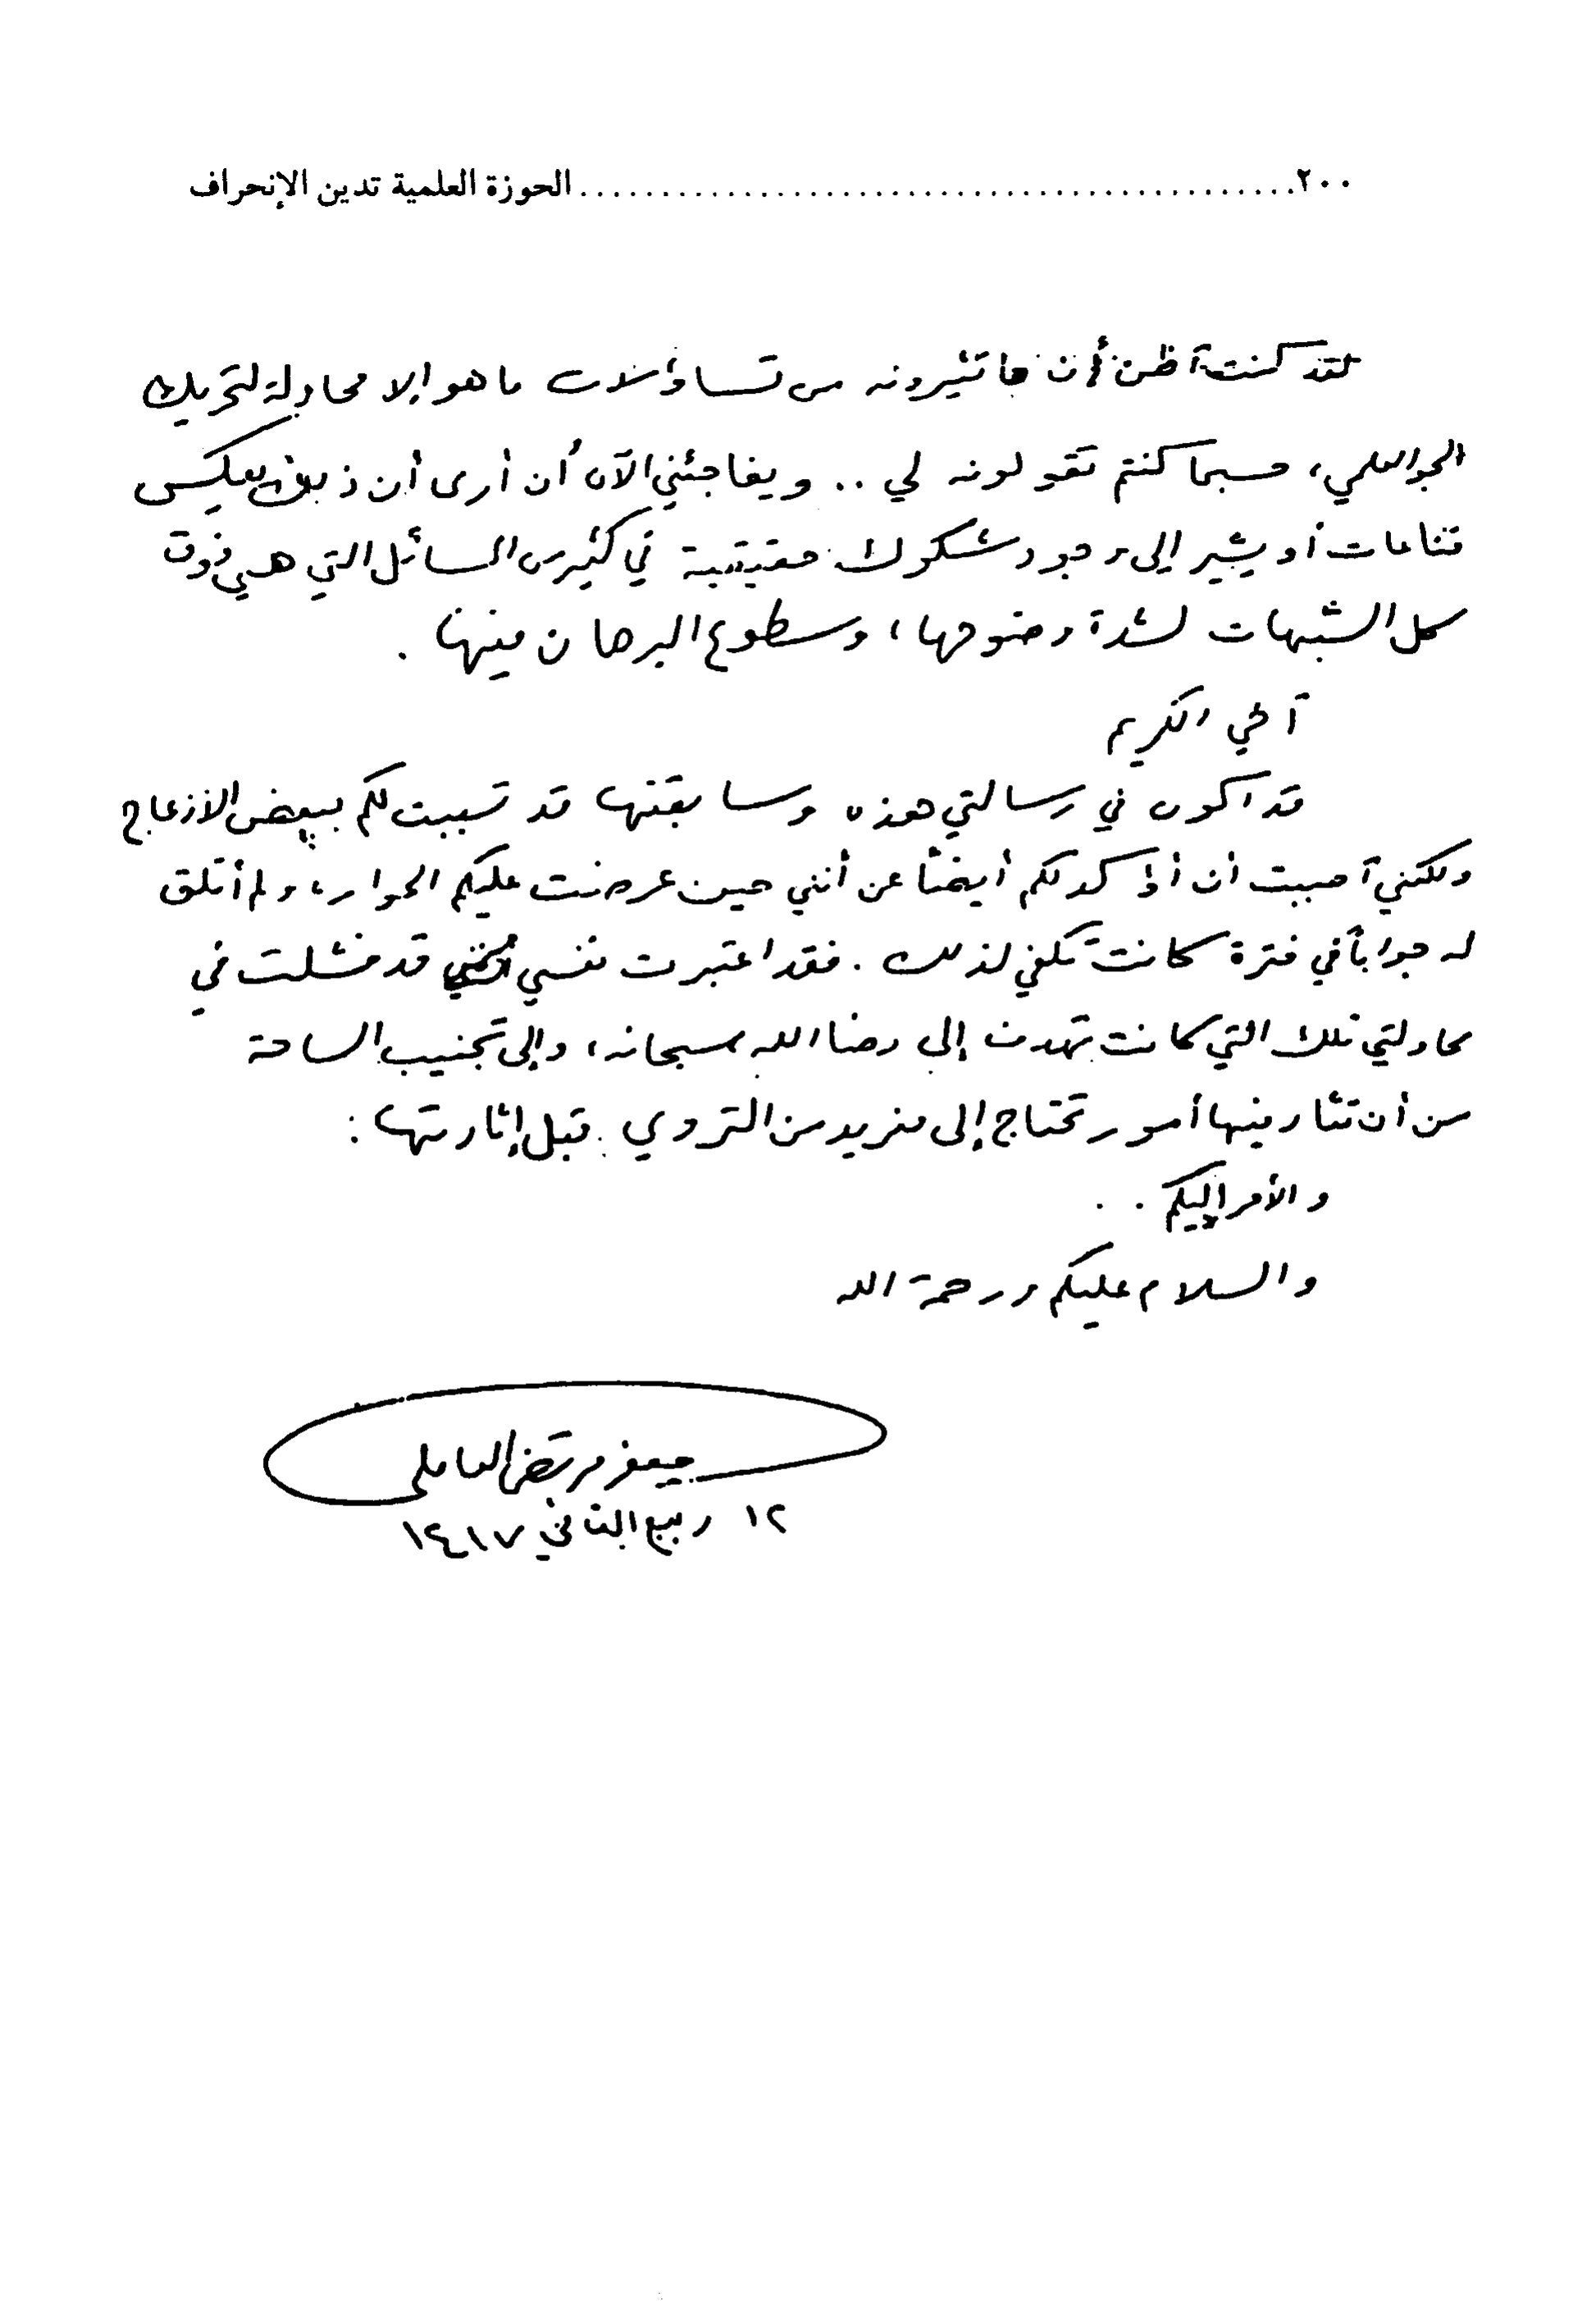 ٢٠٠ ........................................ الحوزة العلمية تدين الإنحراف
لقد كنت أظن أن ما تثيرونه من تساؤلات ما هو إلا محاولة لتحريك
الجو العلمي، حسبما كنتم تقولونه لي .. ويفاجئني الآن أن أرى أن ذلك يعكس
قناعات أو يشير إلى وجود شكوك حقيقية في كثير من المسائل التي هي فوق
كل الشبهات لشدة وضوحها، وسطوع البرهان فيها .
أخي الكريم
قد أكون في رسالتي هذه وسابقتها قد تسببت لكم ببعض الازعاج
ولكني أحببت أن أؤكد لكم أيضاً عن أنني حين عرضت عليكم الحوار، ولم أتلق
له جواباً في فترة كانت تكفي لذلك . فقد اعتبرت نفسي قد فشلت في
محاولتي تلك التي كانت تهدف إلى رضا الله سبحانه، وإلى تجنيب الساحة
من أن تثار فيها أمور تحتاج إلى مزيد من التروي قبل إثارتها :
والأمر إليكم . .
والسلام عليكم ورحمة الله
جعفر مرتضى العاملي
١٢ ربيع الثاني ١٤١٧